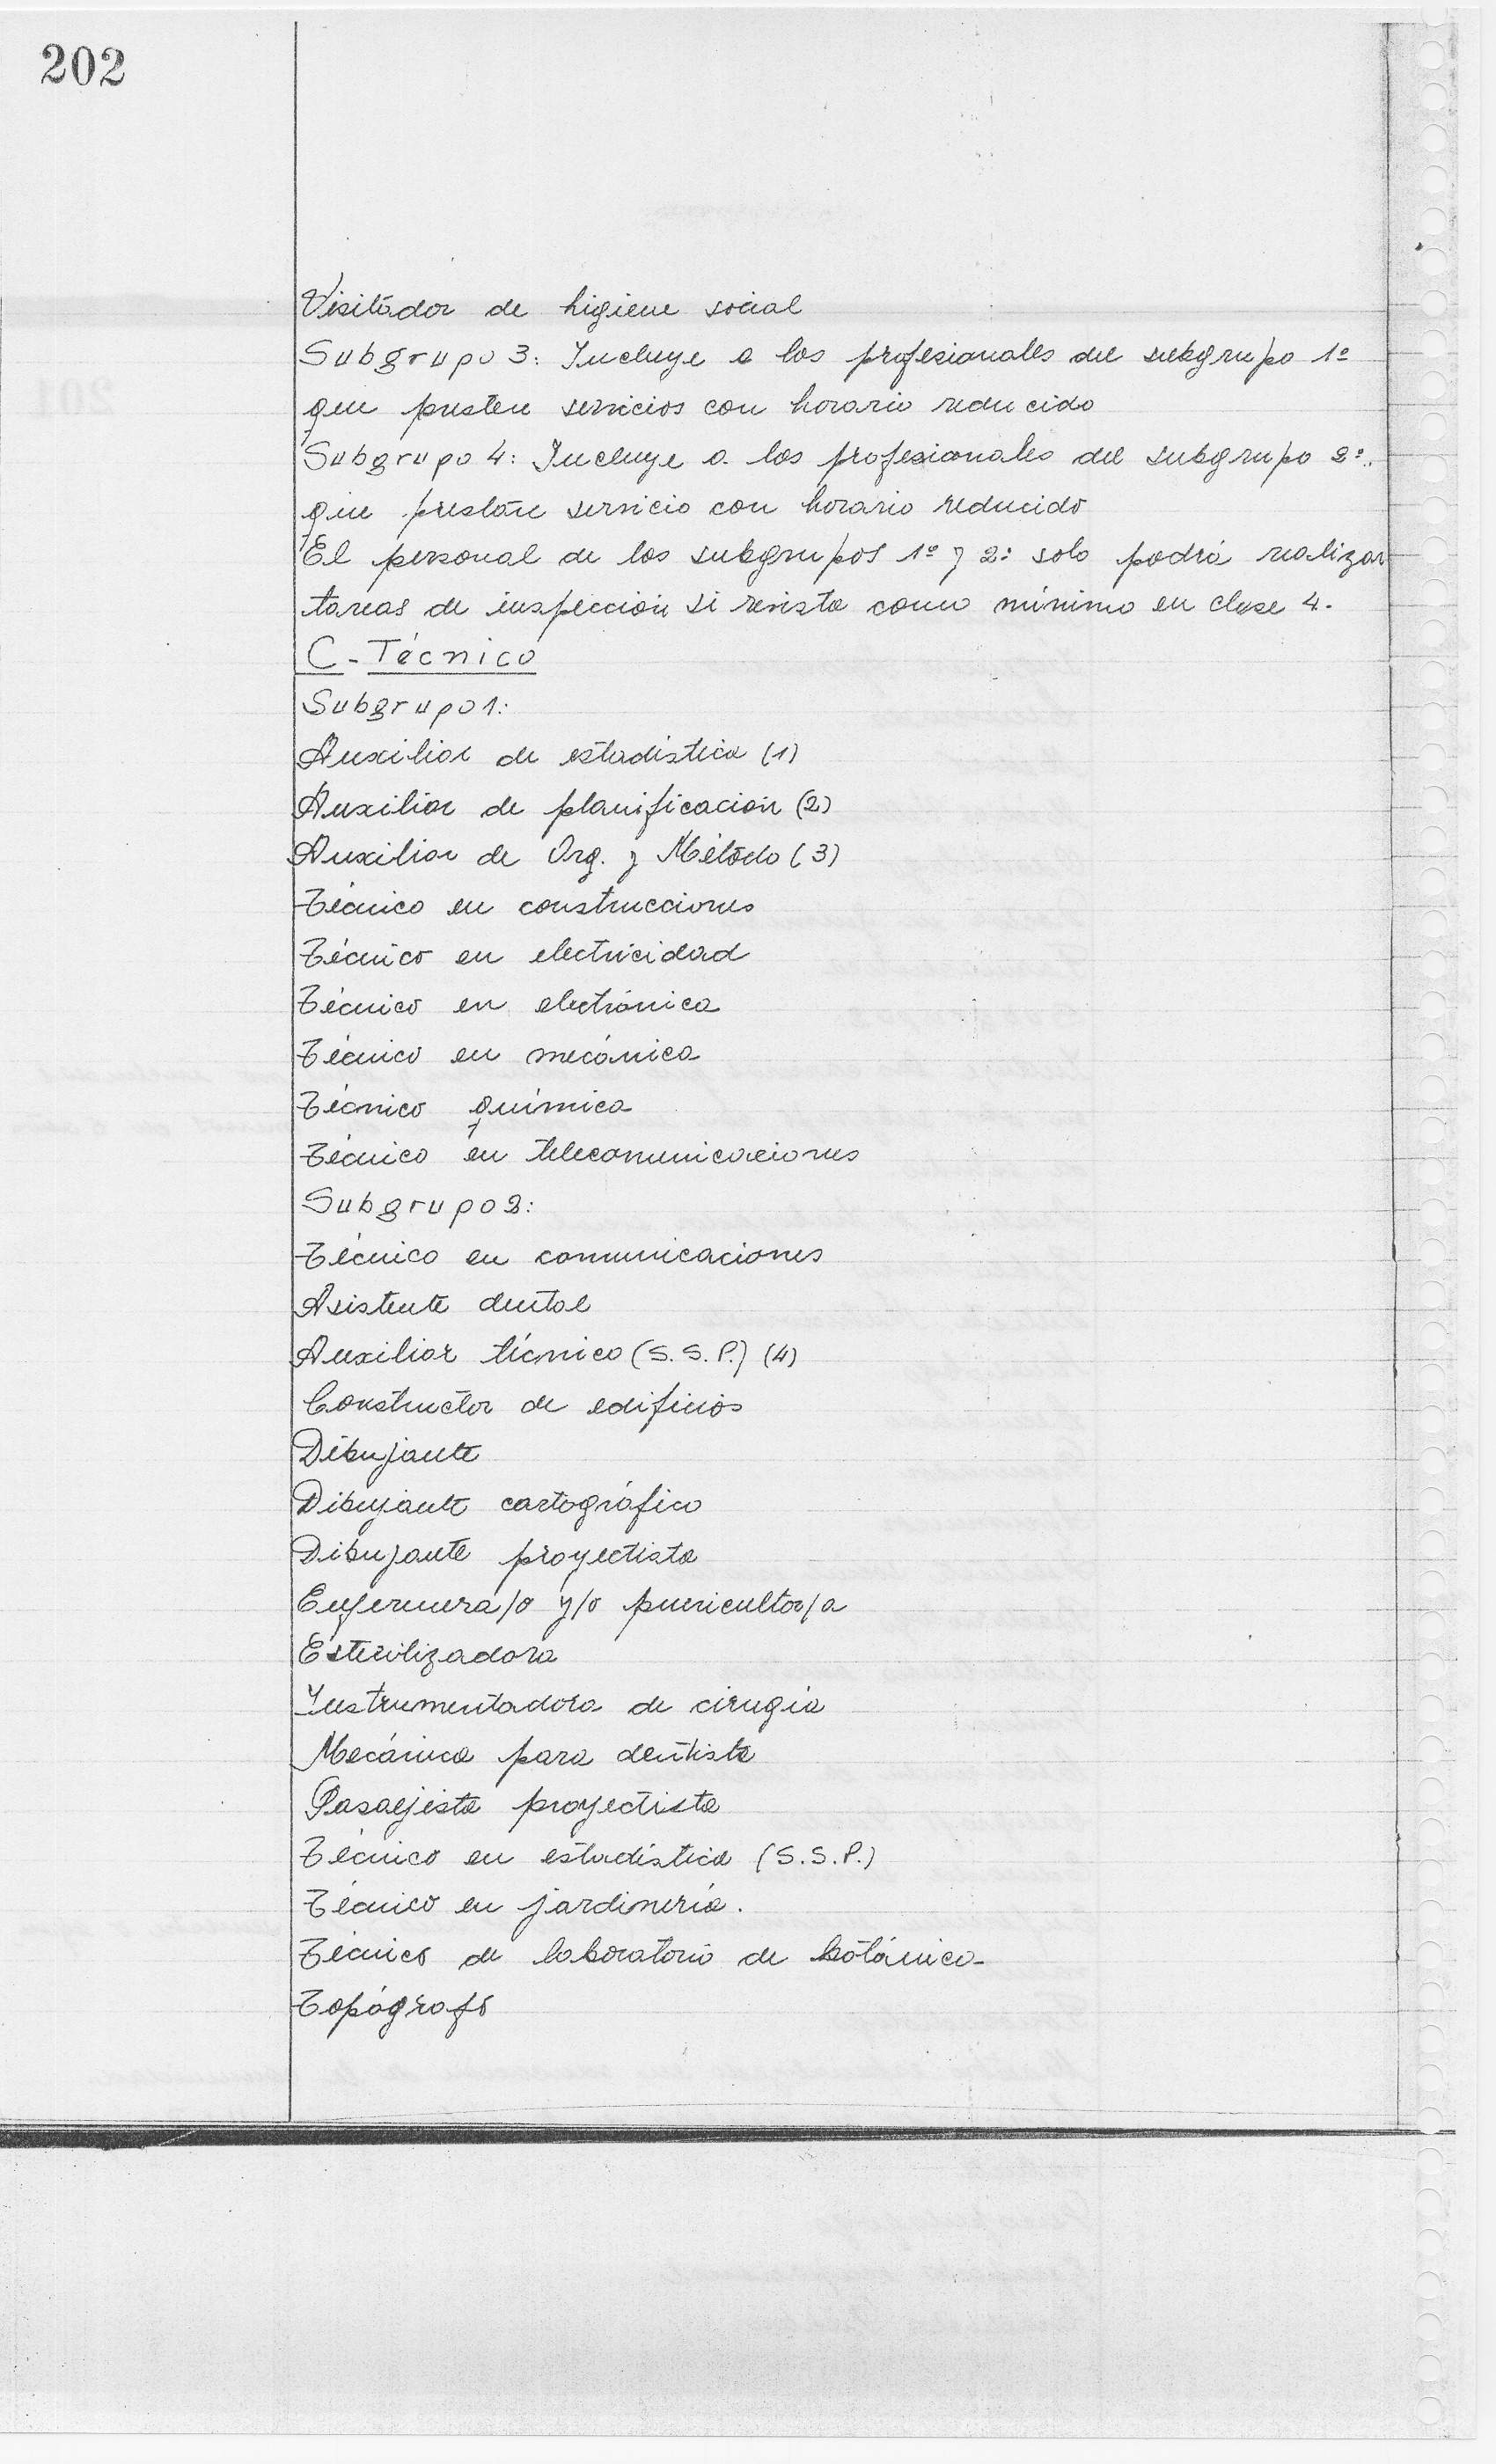 202
Visitador de higiene social
Subgrupo 3: Incluye a los profesionales del subgrupo 1º
que presten servicios con horario reducido
Subgrupo 4: Incluye a los profesionales del subgrupo 2º.
que prestan servicio con horario reducido
El personal de los subgrupos 1º y 2º solo podrá realizar
tareas de inspección si revista como mínimo en clase 4.
C-Técnico
Subgrupo 1:
Auxiliar de estadística (1)
Auxiliar de planificación (2)
Auxiliar de Org. y Método (3)
Técnico en construcciones
Técnico en electricidad
Técnico en electrónica
Técnico en mecánica
Técnico química
Técnico en telecomunicaciones
Subgrupo 2:
Técnico en comunicaciones
Asistente dental
Auxiliar técnico (S.S.P.) (4)
Constructor de edificios
Dibujante
Dibujante cartográfico
Dibujante proyectista
Enfermera/o y/o puericultor/a
Esterilizadora
Instrumentadora de cirugía
Mecánica para dentista
Pasajista proyectista
Técnico en estadística (S.S.P.)
Técnico en jardinería.
Técnico de laboratorio de botánica-
Topógrafo